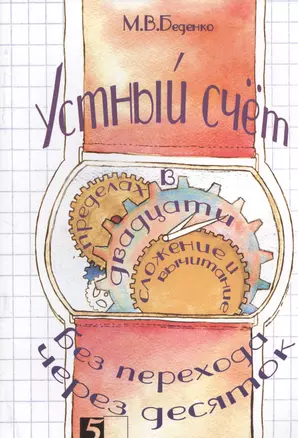 М.В.Беденко
Устный счёт
в
пределах
двадцати
сложение и
вычитание
без перехода
через десяток
5